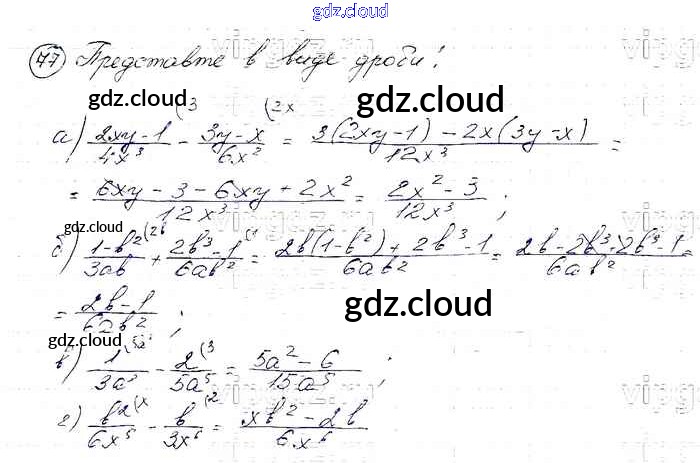 gdz.cloud
77 Представте в виде дроби:
gdz.cloud (3 (2x gdz.cloud
а) (2xy-1)/(4x³) - (3y-x)/(6x²) = (3(2xy-1) - 2x(3y-x))/(12x³) =
= (6xy - 3 - 6xy + 2x²)/(12x³) = (2x² - 3)/(12x³);
gdz.cloud
б) (1-b²)/(3ab) (2b + (2b³-1)/(6ab²) (1 = (2b(1-b²) + 2b³-1)/(6ab²) = (2b-2b³+2b³-1)/(6ab²) =
gdz.cloud
= (2b-1)/(62b²);
gdz.cloud gdz.cloud
в) 1/(3a³) (5a² - 2/(5a⁵) (3 = (5a²-6)/(15a⁵);
gdz.cloud
г) b²/(6x⁵) (x - b/(3x⁶) (2 = (xb²-2b)/(6x⁶)
gdz.cloud